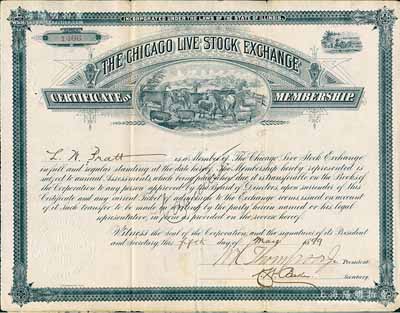 INCORPORATED UNDER THE LAWS OF THE STATE OF ILLINOIS.
1406
THE CHICAGO LIVE STOCK EXCHANGE
CERTIFICATE OF MEMBERSHIP.
L. W. Pratt
is a Member of The Chicago Live Stock Exchange
in full and regular standing at the date hereof. The Membership hereby represented is
subject to annual Assessments, which being paid when due it is transferable on the Books of
the Corporation to any person approved by the Board of Directors, upon surrender of this
Certificate and any current Ticket of admission to the Exchange rooms issued on account
of it. Such transfer to be made in writing by the party herein named or his legal
representative, in form as provided on the reverse hereof.
Witness the Seal of the Corporation, and the signatures of its President
and Secretary, this fifth day of May 1899
President.
Secretary.